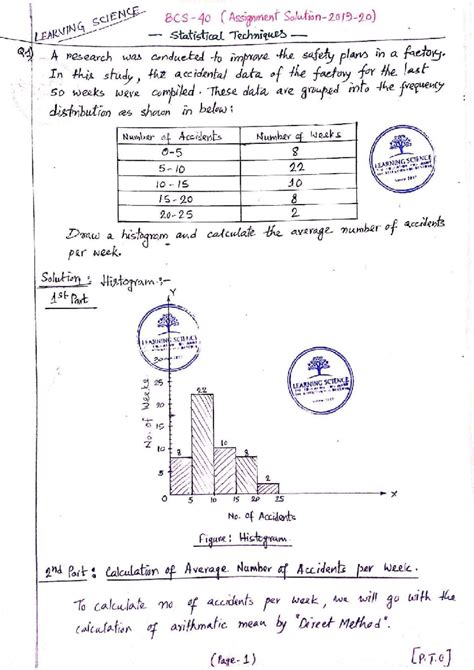 LEARNING SCIENCE
BCS-40 (Assignment Solution-2019-20)
— Statistical Techniques —
Q.1) A research was conducted to improve the safety plans in a factory.
In this study, the accidental data of the factory for the last
50 weeks were compiled. These data are grouped into the frequency
distribution as shown in below:
Number of Accidents Number of Weeks
0-5 8
5-10 22
10-15 10
15-20 8
20-25 2
LEARNING SCIENCE
Draw a histogram and calculate the average number of accidents
per week.
Solution: Histogram:-
1st Part
Y
LEARNING SCIENCE
30
25
20
15
10
5
No. of Weeks
8
22
10
8
2
0 5 10 15 20 25
X
LEARNING SCIENCE
No. of Accidents
Figure: Histogram
2nd Part: Calculation of Average Number of Accidents per week.
To calculate no of accidents per week, we will go with the
calculation of arithmatic mean by "Direct Method".
(Page-1)
[P.T.O]